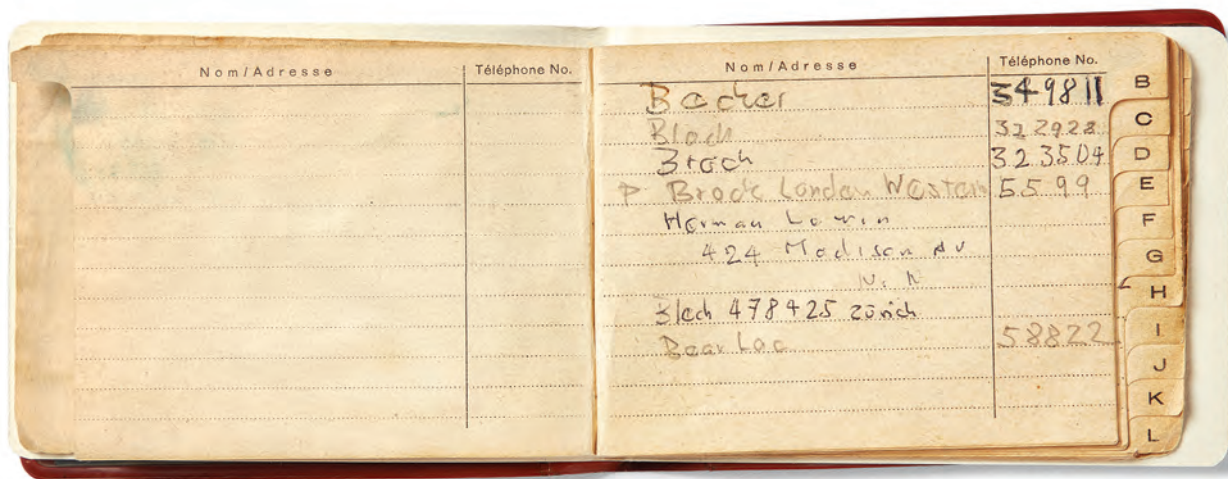 Nom/Adresse Téléphone No.
Nom/Adresse Téléphone No.
Becher 349811
Bloch 322928
Broch 323504
P Brock London Western 5599
Herman Lewin
424 Madison AV
N. N
Blech 478425 Zürich
Beau Lac 58822
B
C
D
E
F
G
H
I
J
K
L